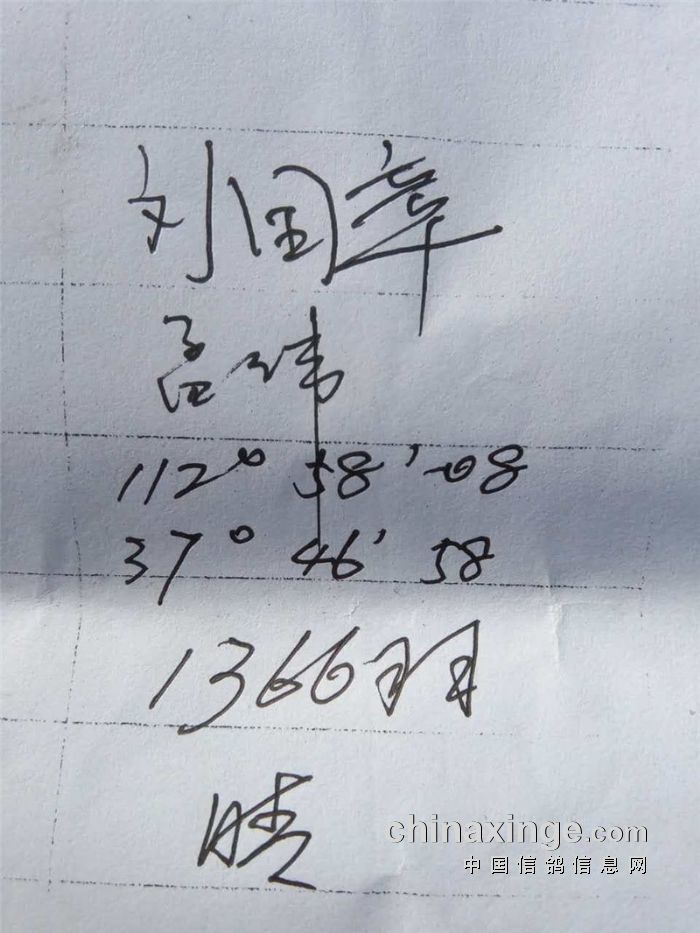 刘国章
孟伟
112° 58' 08
37° 46' 58
1366羽
晴
chinaxinge.com
中国信鸽信息网